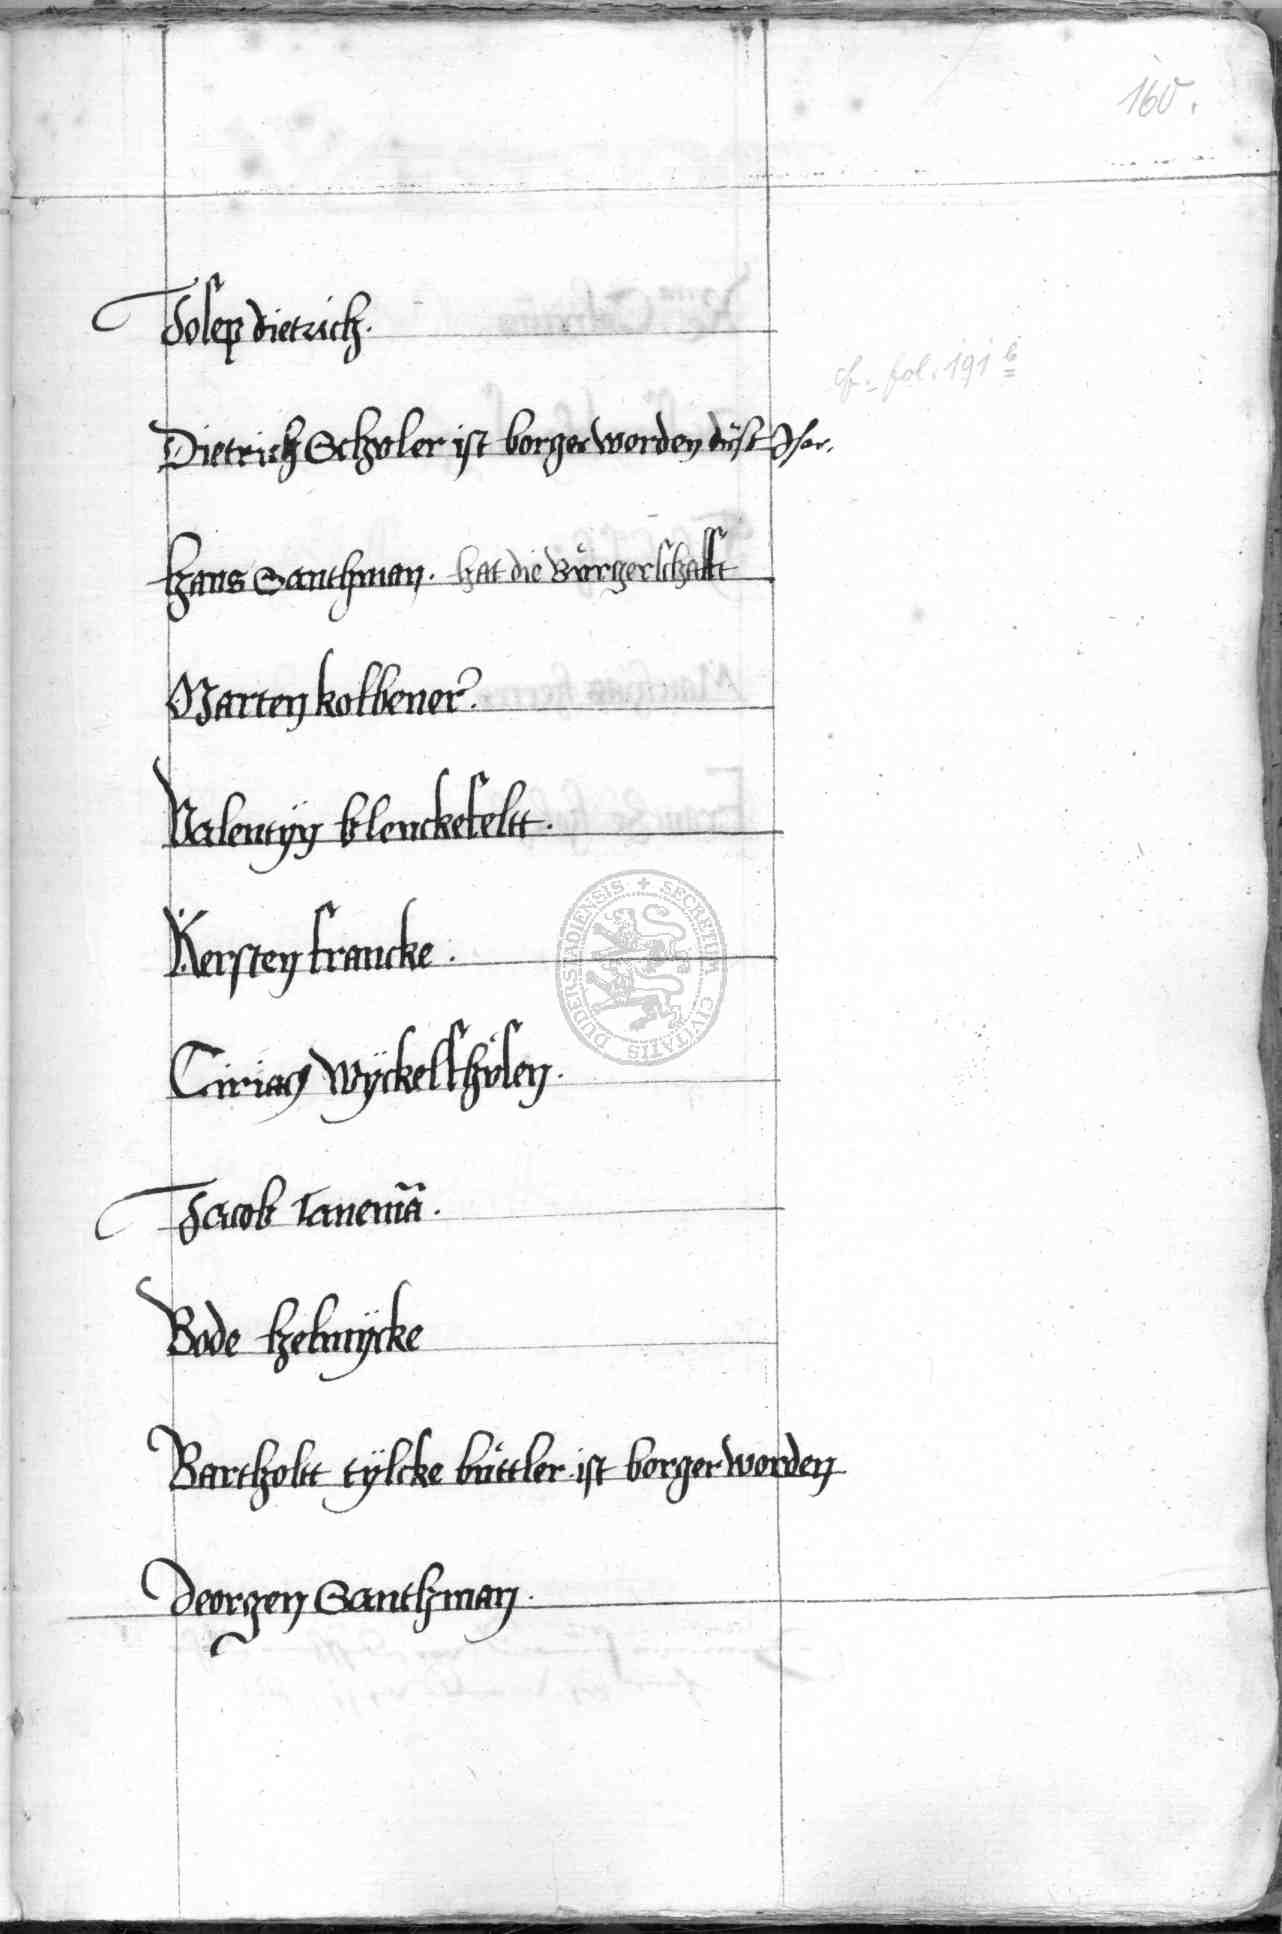 160.
Josep dietrich.
cf. fol. 191 b
Dietrich Scholer ist borger worden düst Jhar.
Hans Santhman. hat die Bůrgerschafft
Marten kolbener.
Valentÿn blenckefeltt.
Kersten francke.
Ciriacs Wÿckelshůsen.
Jacob Tanemã.
Bode helmÿcke
Bartholtt tÿlcke bůttler ist borger worden
Jeorgen Santhman.
SECRETUM CIVITATIS DUDERSTADIENSIS